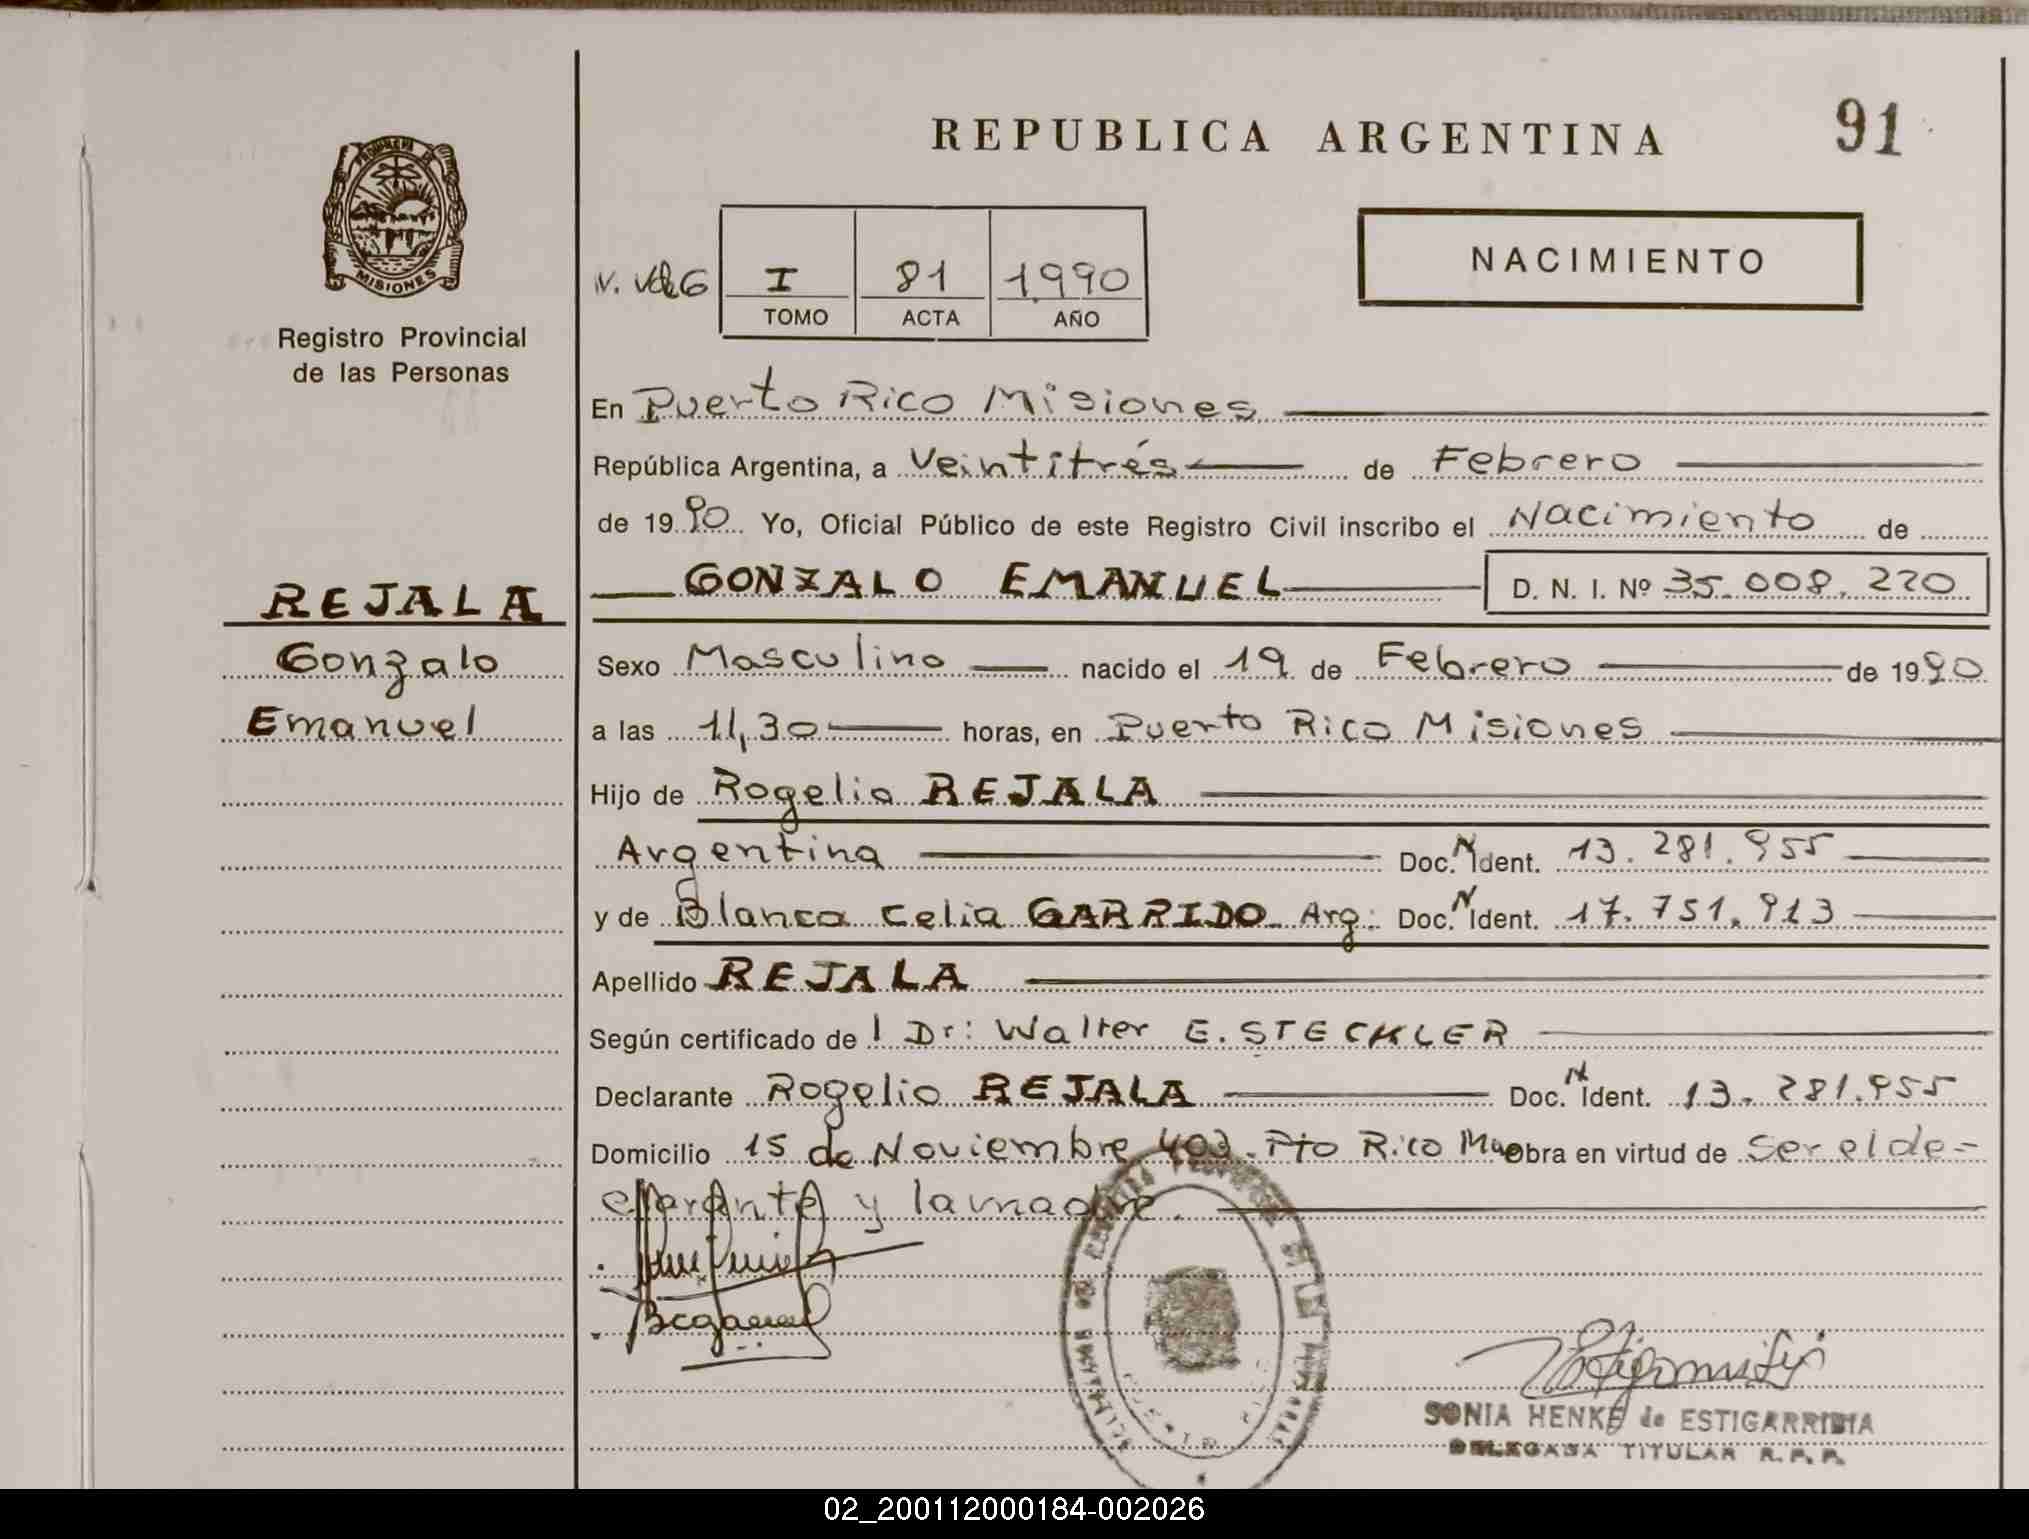 REPUBLICA ARGENTINA
91
PROVINCIA DE
MISIONES
Registro Provincial
de las Personas
NACIMIENTO
I
81
1990
TOMO
ACTA
AÑO
En Puerto Rico Misiones
República Argentina, a Veintitrés de Febrero
de 1990 Yo, Oficial Público de este Registro Civil inscribo el Nacimiento de
REJALA
GONZALO EMANUEL
D. N. I. Nº 35.008.220
Gonzalo
Sexo Masculino nacido el 19 de Febrero de 1990
Emanuel
a las 11,30 horas, en Puerto Rico Misiones
Hijo de Rogelio REJALA
Argentina Doc. N Ident. 13.281.955
y de Blanca Celia GARRIDO Arg: Doc. N Ident. 17.751.913
Apellido REJALA
Según certificado de l Dr: Walter E. STECKLER
Declarante Rogelio REJALA Doc. N Ident. 13.281.955
Domicilio 15 de Noviembre 403. Pto Rico Mnes Obra en virtud de ser el de-
clarante y la madre.
SONIA HENKE de ESTIGARRIBIA
DELEGADA TITULAR R. P. P.
02_200112000184-002026